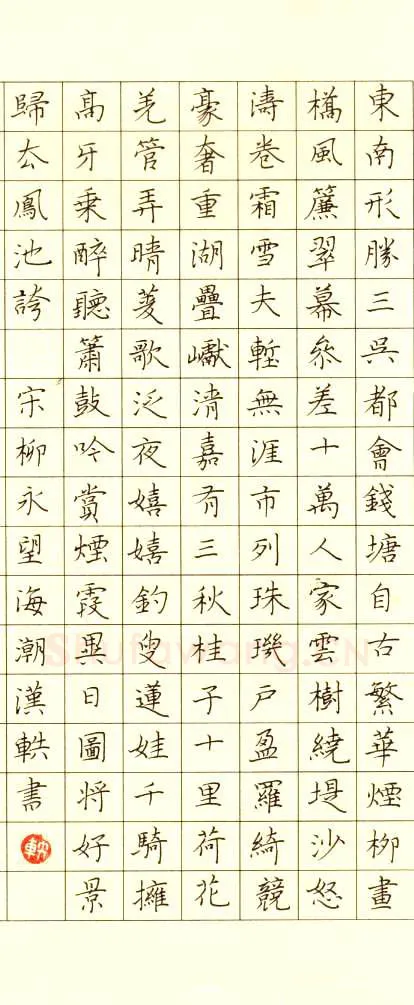 東南形勝三吳都會錢塘自古繁華煙柳畫
橋風簾翠幕參差十萬人家雲樹繞堤沙怒
濤卷霜雪天塹無涯市列珠璣戶盈羅綺競
豪奢重湖疊巘清嘉有三秋桂子十里荷花
羌管弄晴菱歌泛夜嬉嬉釣叟蓮娃千騎擁
高牙乘醉聽簫鼓吟賞煙霞異日圖將好景
歸去鳳池誇 宋柳永望海潮漢軼書
Shufawang.CN